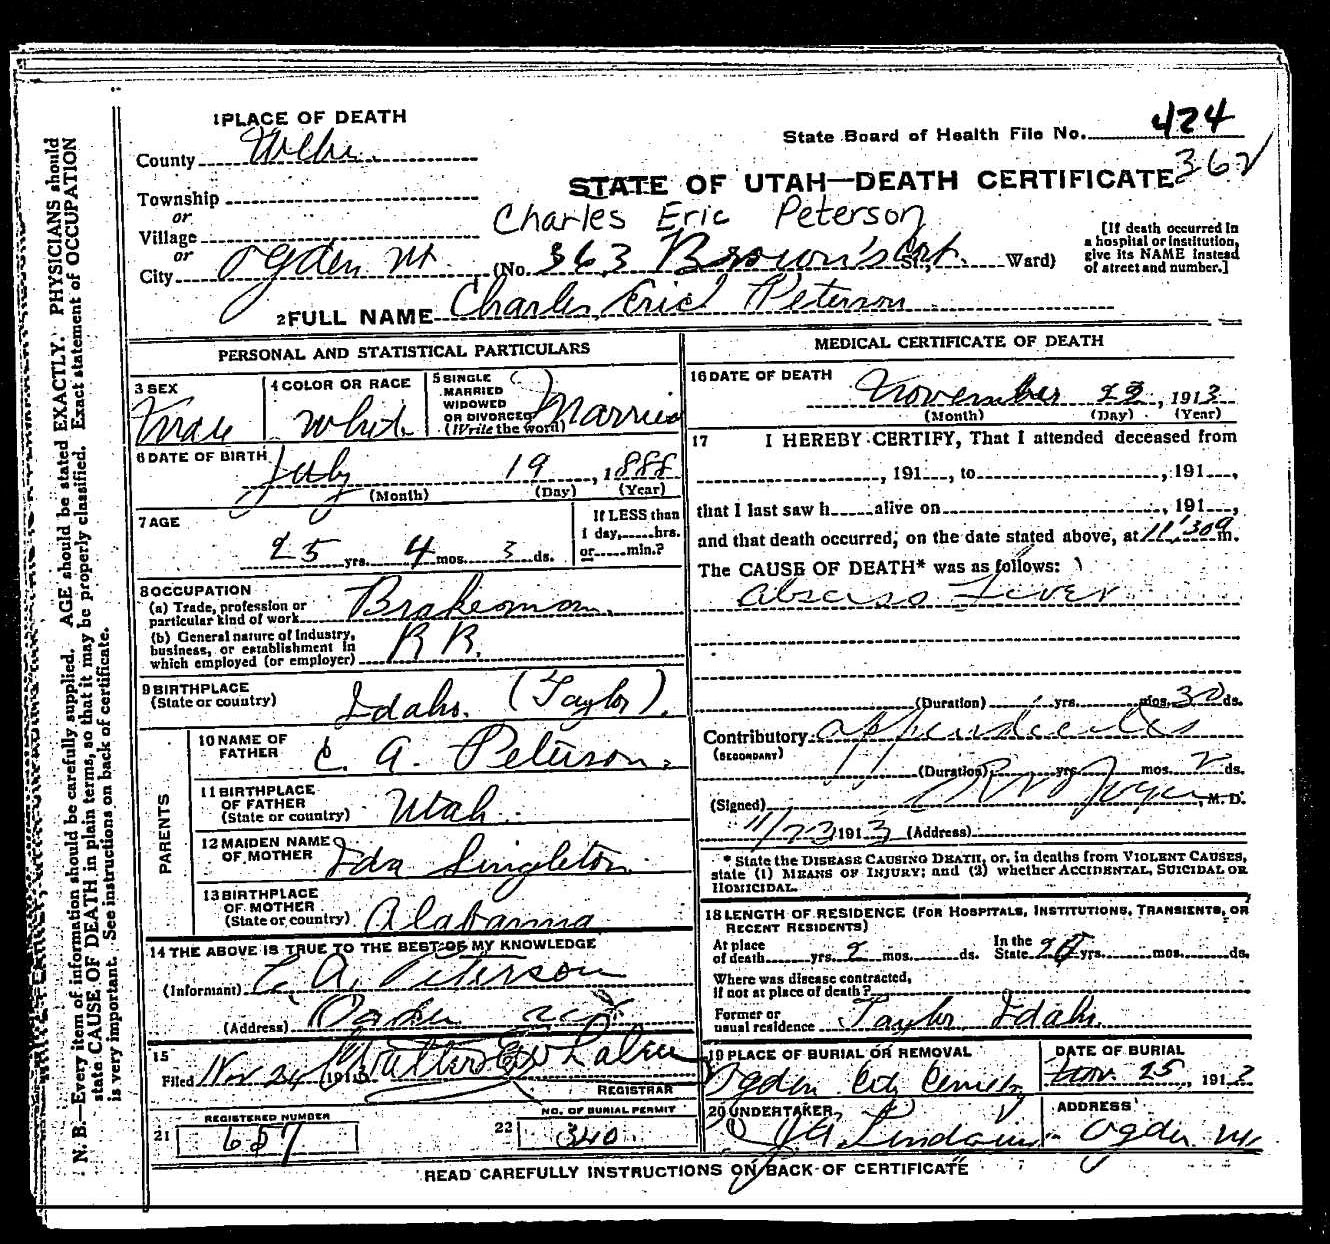 1 PLACE OF DEATH
County Weber
State Board of Health File No. 424
362
STATE OF UTAH—DEATH CERTIFICATE
Township
or
Village
or
Charles Eric Peterson
City Ogden Ut. (No. 363 Brown's Crt. St., Ward)
[If death occurred in
a hospital or institution,
give its NAME instead
of street and number.]
2 FULL NAME Charles Eric Peterson
PERSONAL AND STATISTICAL PARTICULARS
3 SEX
Male
4 COLOR OR RACE
White
5 SINGLE
MARRIED
WIDOWED
OR DIVORCED
(Write the word)
Married
6 DATE OF BIRTH
July 19, 1888
(Month) (Day) (Year)
7 AGE
25 yrs. 4 mos. 3 ds.
If LESS than
1 day,.....hrs.
or.....min.?
8 OCCUPATION
(a) Trade, profession or
particular kind of work Brakeman
(b) General nature of Industry,
business, or establishment in
which employed (or employer) R R.
9 BIRTHPLACE
(State or country) Idaho. (Taylor).
PARENTS
10 NAME OF
FATHER C. A. Peterson
11 BIRTHPLACE
OF FATHER
(State or country) Utah
12 MAIDEN NAME
OF MOTHER Ida Singleton
13 BIRTHPLACE
OF MOTHER
(State or country) Alabama
14 THE ABOVE IS TRUE TO THE BEST OF MY KNOWLEDGE
(Informant) C. A. Peterson
(Address)
15
Filed Nov 24 1913 Walter Whalen
REGISTRAR
REGISTERED NUMBER
21 657
NO. OF BURIAL PERMIT
22 340
MEDICAL CERTIFICATE OF DEATH
16 DATE OF DEATH
November 22, 1913
(Month) (Day) (Year)
17 I HEREBY CERTIFY, That I attended deceased from
, 191..., to , 191...,
that I last saw h alive on , 191...,
and that death occurred, on the date stated above, at 11:30 a m.
The CAUSE OF DEATH* was as follows:
Abscess Liver
(Duration) yrs. mos. 30 ds.
Contributory appendicitis
(SECONDARY)
(Duration) yrs. mos. ds.
(Signed) , M. D.
11/23 1913 (Address)
* State the DISEASE CAUSING DEATH, or, in deaths from VIOLENT CAUSES,
state (1) MEANS OF INJURY; and (2) whether ACCIDENTAL, SUICIDAL OR
HOMICIDAL.
18 LENGTH OF RESIDENCE (FOR HOSPITALS, INSTITUTIONS, TRANSIENTS, OR
RECENT RESIDENTS)
At place
of death yrs. 2 mos. ds. In the
State yrs. mos. ds.
Where was disease contracted,
if not at place of death?
Former or
usual residence Taylor, Idaho.
19 PLACE OF BURIAL OR REMOVAL
Ogden City Cemetery
DATE OF BURIAL
Nov. 25, 1913
20 UNDERTAKER
Lindquist
ADDRESS
Ogden Ut.
READ CAREFULLY INSTRUCTIONS ON BACK OF CERTIFICATE
N. B.—Every item of information should be carefully supplied. AGE should be stated EXACTLY. PHYSICIANS should
state CAUSE OF DEATH in plain terms, so that it may be properly classified. Exact statement of OCCUPATION
is very important. See instructions on back of certificate.